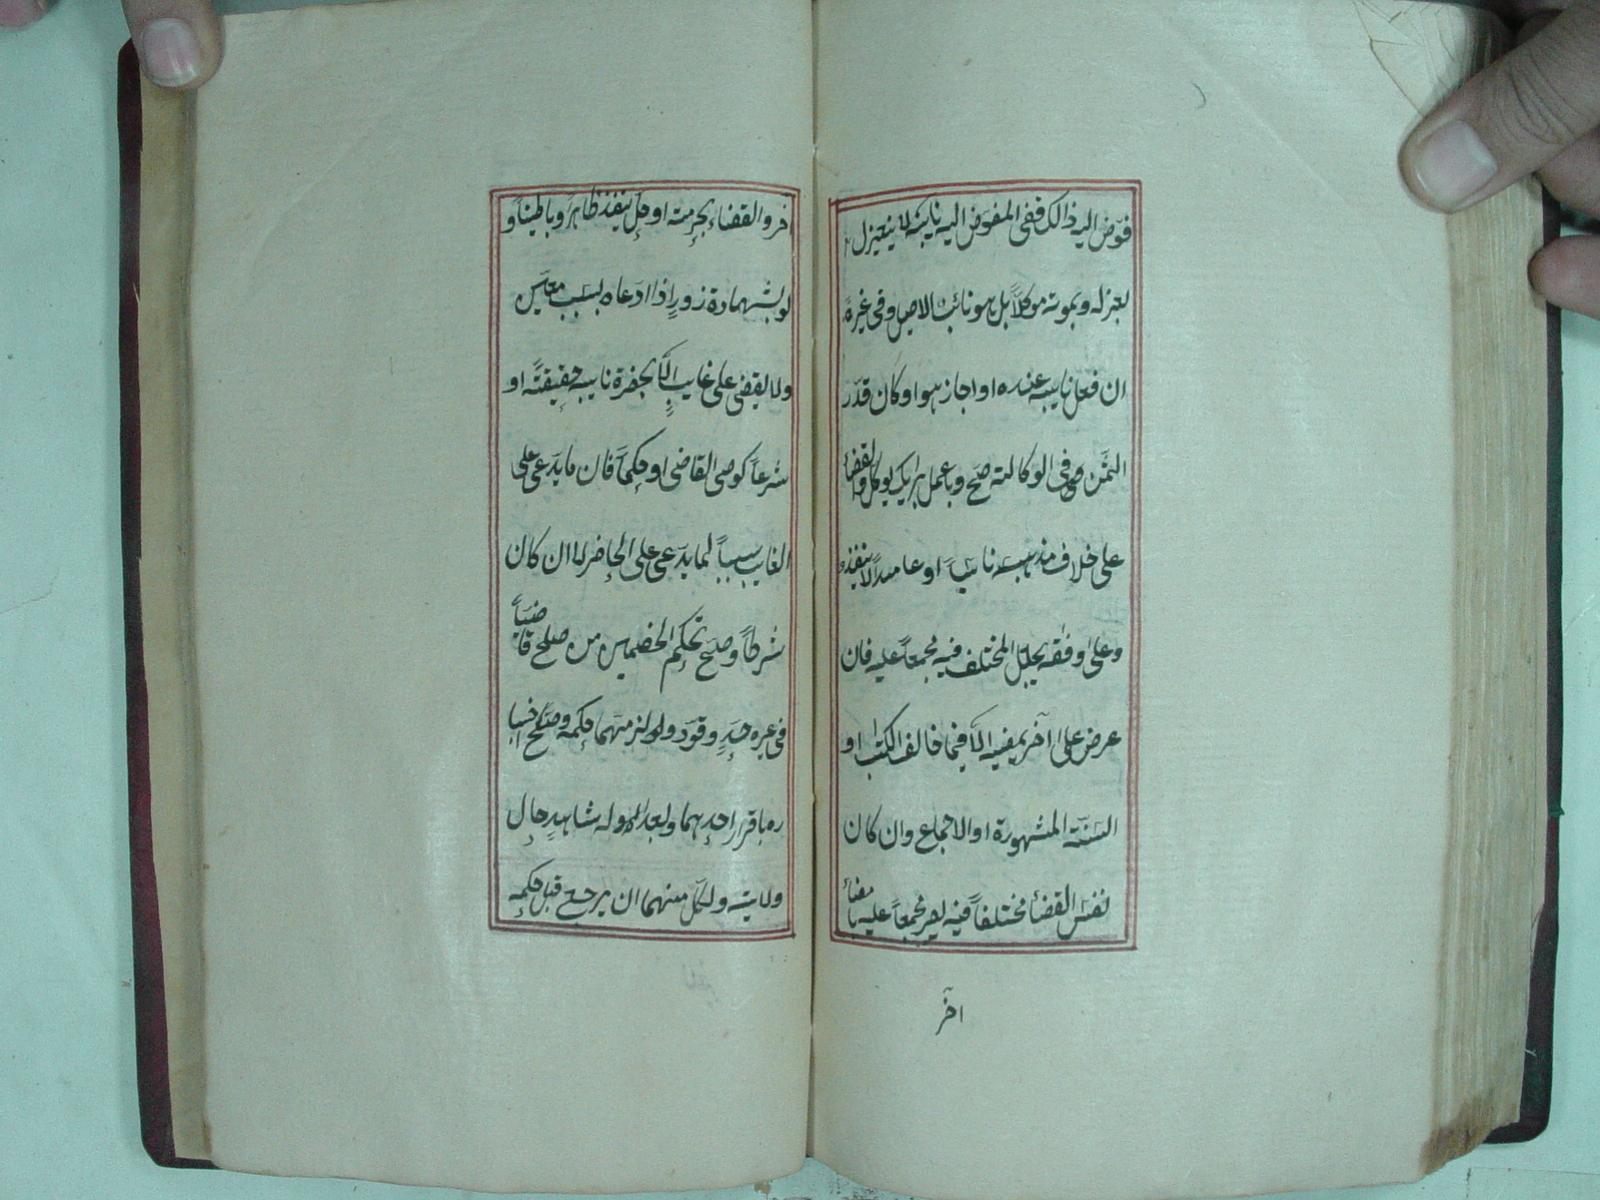 فوّض اليه ذالك ففى المفوض اليه نايبه لا ينعزل
بعزله وبموته موكلاً بل هو نائب الاصيل وفى غيره
ان فعل نايبه عنده او اجاز هو او كان قدّر
الثمّن فى الوكالته صحّ وبا عمل برايك يوكل والقضاءُ
على خلاف مذهبه ناسيًا او عامداً لا ينفذ
وعلى وفقه يجعل المختلف فيه مجمعاً عليه فان
عرض على آخر يمضيه الّا فيما خالف الكتٰب او
السنّة المشهورة او الاجماع وان كان
نفس القضاءُ مختلفاً فيه يصير مجمعاً عليه بامضاءُ
آخر
اخر والقضاء بحرمته او حلّ ينفذ ظاهراً وباطناً و
لو بشهادة زورٍ اذا ادعاه بسبب معيّن
ولا يقضى على غايبٍ الّا بحضرة نايبه حقيقتًه او
شرعاً كوصى القاضى او حكماً فان ما يدّعى على
الغايب سبباً لما يدّعى على الحاضر لا ان كان
شرطاً وصحّ تحكيم الخصمين من صلح قاضياً
فى غيره حدٍ وقود ولزمهما حكمه وصحّ اخبا
ره باقرار احدهما وبعدالة شاهدٍ حال
ولايته ولكلّ منهما ان يرجع قبل حكمه